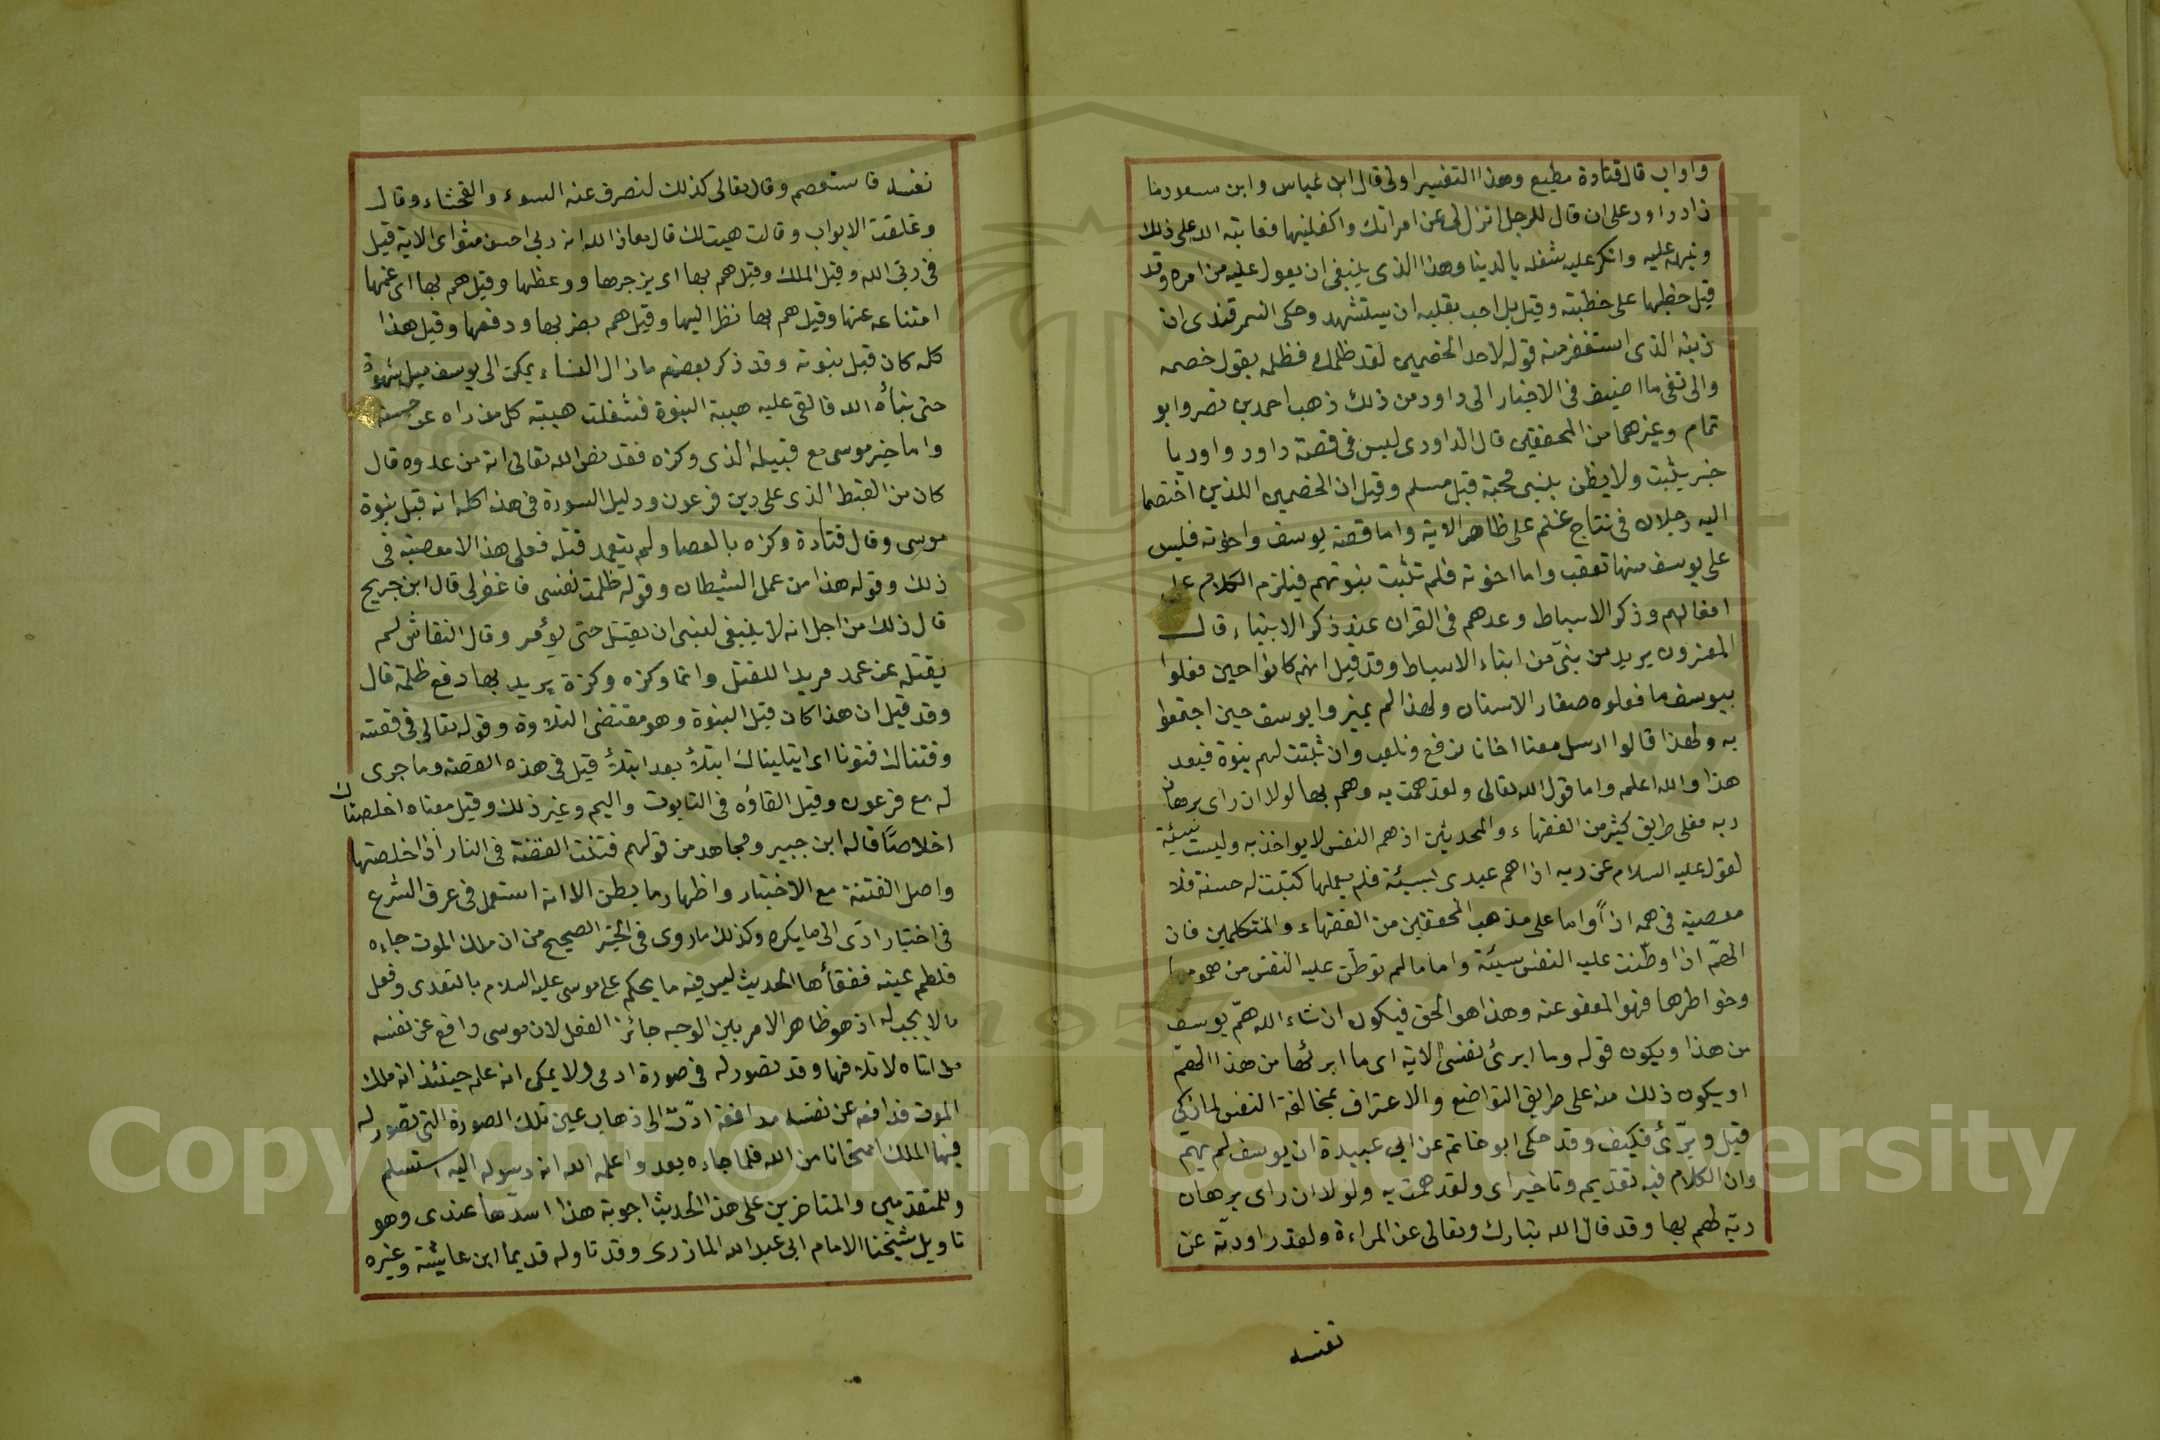 واواب قال قتادة مطيع وهذا التفسير اولى قال ابن عباس وابن مسعود ما
زاد داود على ان قال للرجل انزل لى عن امراتك واكفلنيها فعاتبه الله على ذلك
ونبهه عليه وانكر عليه شغله بالدينا وهذا الذى ينبغى ان يعول عليه من امره وقد
قيل خطبها على خطبته وقيل بل احب بقلبه ان يستشهد وحكى السمرقندى ان
ذنبه الذى استغفر منه قوله لاحد الخصمين لقد ظلمك فظلمه بقول خصمه
والى نفى ما اضيف فى الاخبار الى داود من ذلك ذهب احمد بن نصر وابو
تمام وغيرهما من المحققين قال الداودى ليس فى قصة داود واوريا
خبر يثبت ولا يظن بنبى محبة قتل مسلم وقيل ان الخصمين اللذين اختصما
اليه رجلان فى نتاج غنم على ظاهر الاية واما قصة يوسف واخوته فليس
على يوسف منها تعقب واما اخوته فلم تثبت نبوتهم فيلزم الكلام على
افعالهم وذكر الاسباط وعدهم فى القران عند ذكر الانبياء قال
المفسرون يريد من نبئ من ابناء الاسباط وقد قيل انهم كانوا حين فعلوا
بيوسف ما فعلوه صغار الاسنان ولهذا لم يميزوا يوسف حين اجتمعوا
به ولهذا قالوا ارسل معنا اخانا نرفع ونلعب وان ثبتت لهم نبوة فبعد
هذا والله اعلم واما قول الله تعالى ولقد همت به وهم بها لولا ان راى برهان
ربه فعلى طريق كثير من الفقهاء والمحدثين ان هم النفس لا يواخذ به وليست سيئة
لقوله عليه السلام عن ربه اذا هم عبدى بسيئة فلم يعملها كتبت له حسنة فلا
معصية فى همه اذاً واما على مذهب المحققين من الفقهاء والمتكلمين فان
الهمّ اذا وطّنت عليه النفس سيئة واما ما لم توطّن عليه النفس من همومها
وخواطرها فهو المعفو عنه وهذا هو الحق فيكون ان شاء الله همّ يوسف
من هذا ويكون قوله وما ابرئ نفسى الاية اى ما ابرئها من هذا الهمّ
او يكون ذلك منه على طريق التواضع والاعتراف بمخالفة النفس لما زكى
قبل وبرّئ فكيف وقد حكى ابو حاتم عن ابى عبيدة ان يوسف لم يهمّ
وان الكلام فيه تقديم وتاخير اى ولقد همت به ولولا ان راى برهان
ربّه لهم بها وقد قال الله تبارك وتعالى عن المراءة ولقد راودته عن
نفسه
نفسه فاستعصم وقال تعالى كذلك لنصرف عنه السوء والفحشاء وقال
وغلقت الابواب وقالت هيت لك قال معاذ الله انه ربى احسن مثواى الاية قيل
فى ربى الله وقيل الملك وقيل هم بها اى يزجرها ووعظها وقيل هم بها اى غمها
امتناعه عنها وقيل هم بها نظر اليها وقيل هم بضربها ودفعها وقيل هذا
كله كان قبل نبوته وقد ذكر بعضهم ما زال النساء يمكن الى يوسف ميل شهوة
حتى نبأه الله فالقى عليه هيبة النبوة فشغلت هيبته كل من راه عن حسنه
واما خبر موسى مع قتيله الذى وكزه فقد نص الله تعالى انه من عدوه قال
كان من القبط الذى على دين فرعون ودليل السورة فى هذا كله انه قبل نبوة
موسى وقال قتادة وكزه بالعصا ولم يتعمد قتله فعلى هذا لا معصية فى
ذلك وقوله هذا من عمل الشيطان وقوله ظلمت نفسى فاغفر لى قال ابن جريج
قال ذلك من اجل انه لا ينبغى لنبى ان يقتل حتى يؤمر وقال النقاش لم
يقتله عن عمد مريدا للقتل وانما وكزه وكزة يريد بها دفع ظلمه قال
وقد قيل ان هذا كان قبل النبوة وهو مقتضى التلاوة وقوله تعالى فى قصته
وفتناك فتونا اى ابتليناك ابتلأ بعد ابتلأ قيل فى هذه القصة وما جرى
له مع فرعون وقيل القاؤه فى التابوت واليم وغير ذلك وقيل معناه اخلصناك
اخلاصًا قاله ابن جبير ومجاهد من قولهم فتنت الفضة فى النار اذا خلصتها
واصل الفتنة مع الاختبار واظهار ما بطن الا انه استعمل فى عرف الشرع
فى اختبار ادّى الى ما يكره وكذلك ما روى فى الخبر الصحيح من ان ملك الموت جاءه
فلطم عينه ففقأها الحديث ليس فيه ما يحكم على موسى عليه السلام بالتعدى وفعل
ما لا يجب له اذ هو ظاهر الامر بين الوجه جائز الفعل لان موسى دافع عن نفسه
من اتاه لاتلافها وقد تصور له فى صورة ادمى ولا يمكن انه علم حينئذ انه ملك
الموت فدافعه عن نفسه مدافعة ادّت الى ذهاب عين تلك الصورة التى تصّور له
فيها الملك امتحانا من الله فلما جاءه بعد واعلمه الله انه رسوله اليه استسلم
وللمتقدمين والمتاخرين على هذا الحديث اجوبة هذا اسدّها عندى وهو
تاويل شيخنا الامام ابى عبد الله المازرى وقد تاوله قديما ابن عايشة وغيره
Copyright © King Saud University